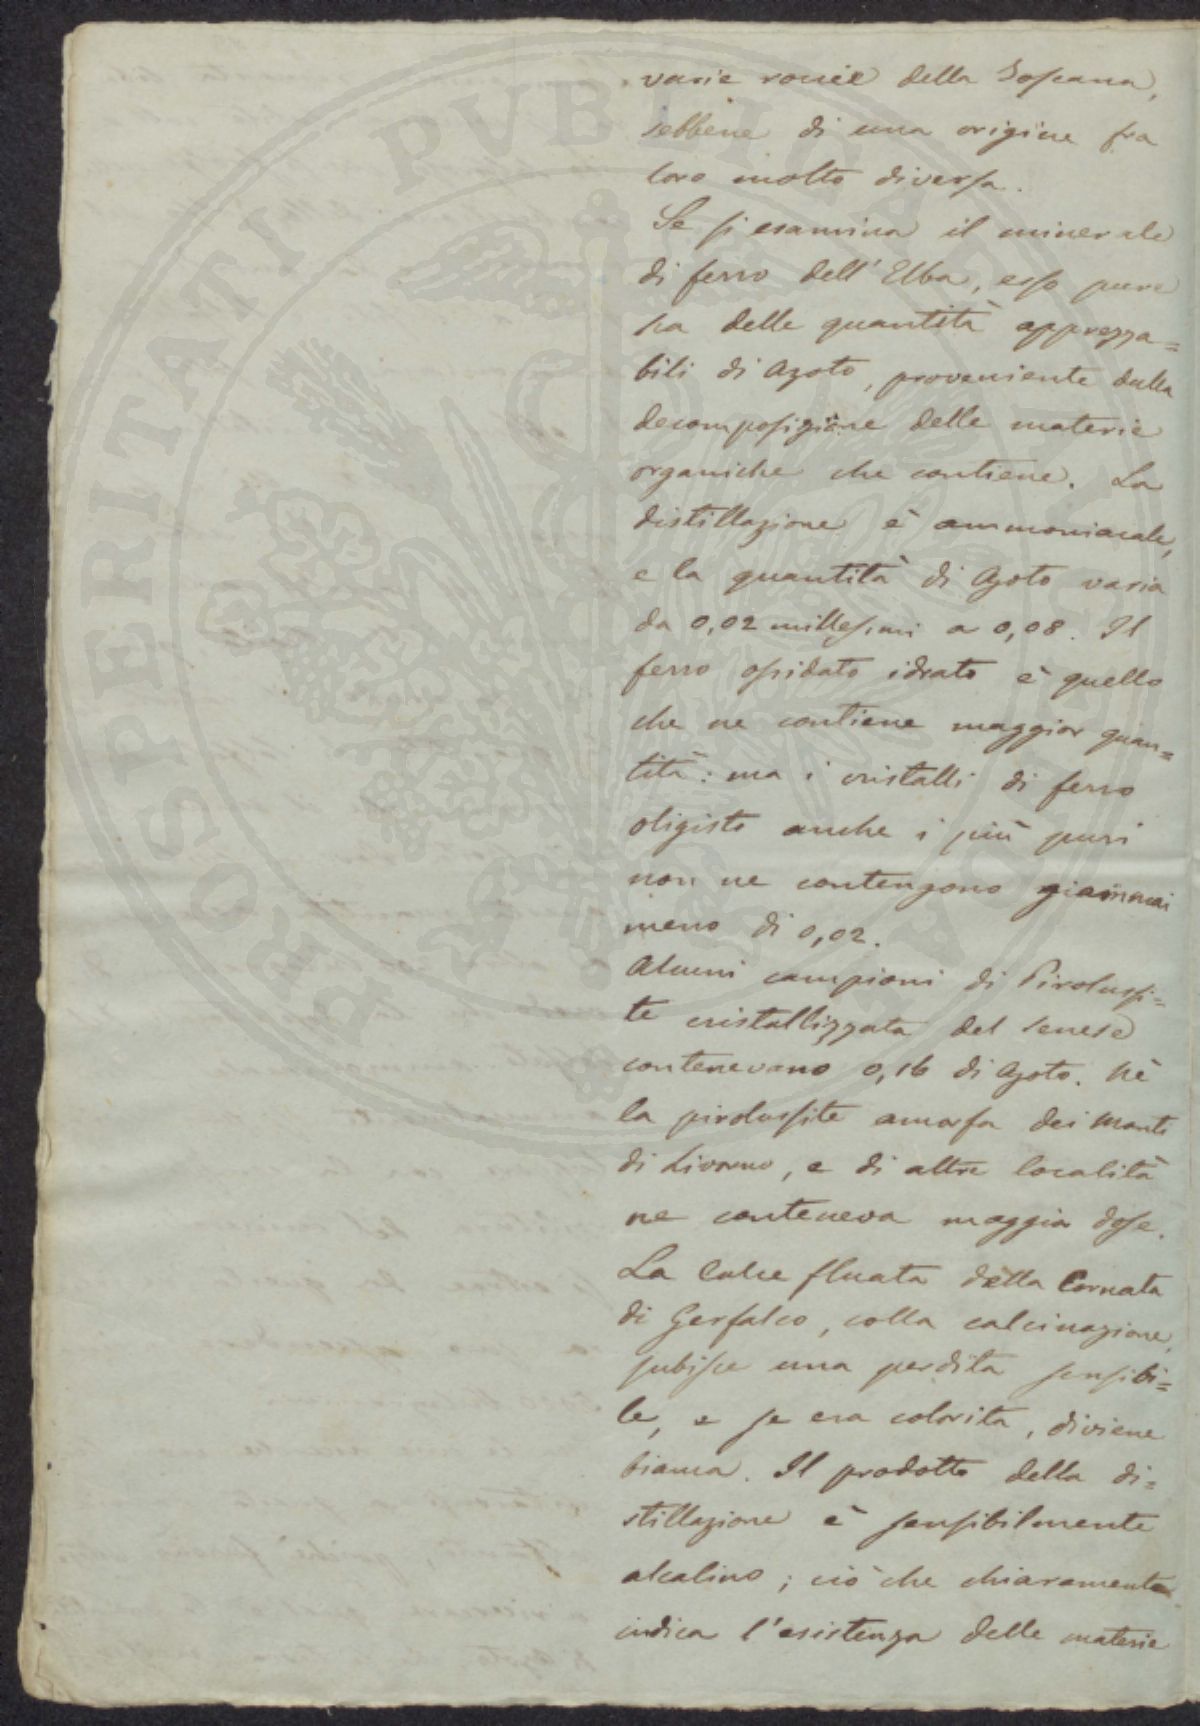 varie roccie della Toscana,
sebbene di una origine fra
loro molto diversa.
Se si esamina il minerale
di ferro dell'Elba, esso pure
ha delle quantità apprezza=
bili di Azoto, proveniente dalla
decomposizione delle materie
organiche che contiene. La
distillazione è ammoniacale,
e la quantità di Azoto varia
da 0,02 millesimi a 0,08. Il
ferro ossidato idrato è quello
che ne contiene maggior quan=
tità: ma i cristalli di ferro
oligisto anche i più puri
non ne contengono giammai
meno di 0,02.
Alcuni campioni di Pirolussi=
te cristallizzata del senese
contenevano 0,16 di Azoto. Nè
la pirolussite amorfa dei Monti
di Livorno, e di altre località
ne conteneva maggior dose.
La Calce fluata della Cornata
di Gerfalco, colla calcinazione,
subisce una perdita sensibi=
le, e se era colorita, diviene
bianca. Il prodotto della di=
stillazione è sensibilmente
alcalino; ciò che chiaramente
indica l'esistenza delle materie
PROSPERITATI PUBLICAE AUGENDAE